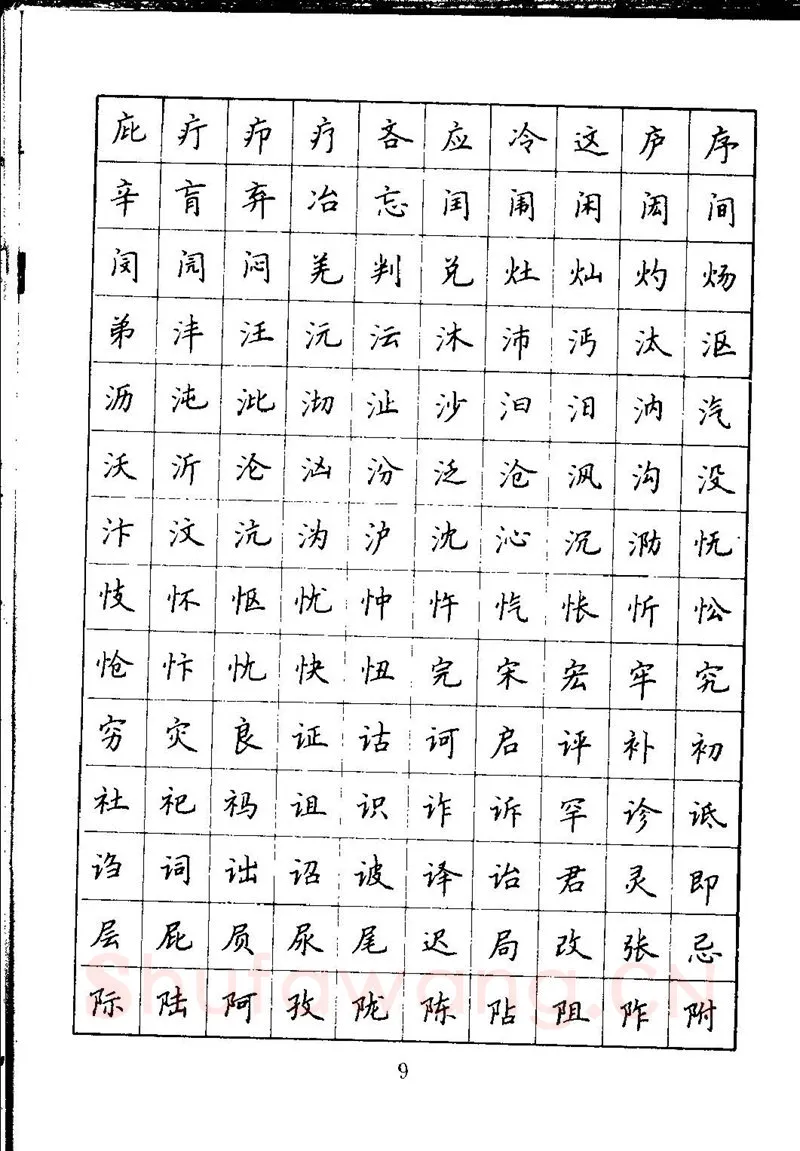 庇 疔 疖 疗 吝 应 冷 这 庐 序
辛 肓 弃 冶 忘 闰 闱 闲 闳 间
闵 闶 闷 羌 判 兑 灶 灿 灼 炀
弟 沣 汪 沅 沄 沐 沛 沔 汰 沤
沥 沌 沘 沏 沚 沙 汩 汨 汭 汽
沃 沂 沦 汹 汾 泛 沧 沨 沟 没
汴 汶 沆 沩 沪 沈 沁 沉 泐 怃
忮 怀 怄 忧 忡 忤 忾 怅 忻 忪
怆 忭 忱 快 忸 完 宋 宏 牢 究
穷 灾 良 证 诂 诃 启 评 补 初
社 祀 祃 诅 识 诈 诉 罕 诊 诋
诌 词 诎 诏 诐 译 诒 君 灵 即
层 屁 屃 尿 尾 迟 局 改 张 忌
际 陆 阿 孜 陇 陈 阽 阻 阼 附
Shufawang.CN
9